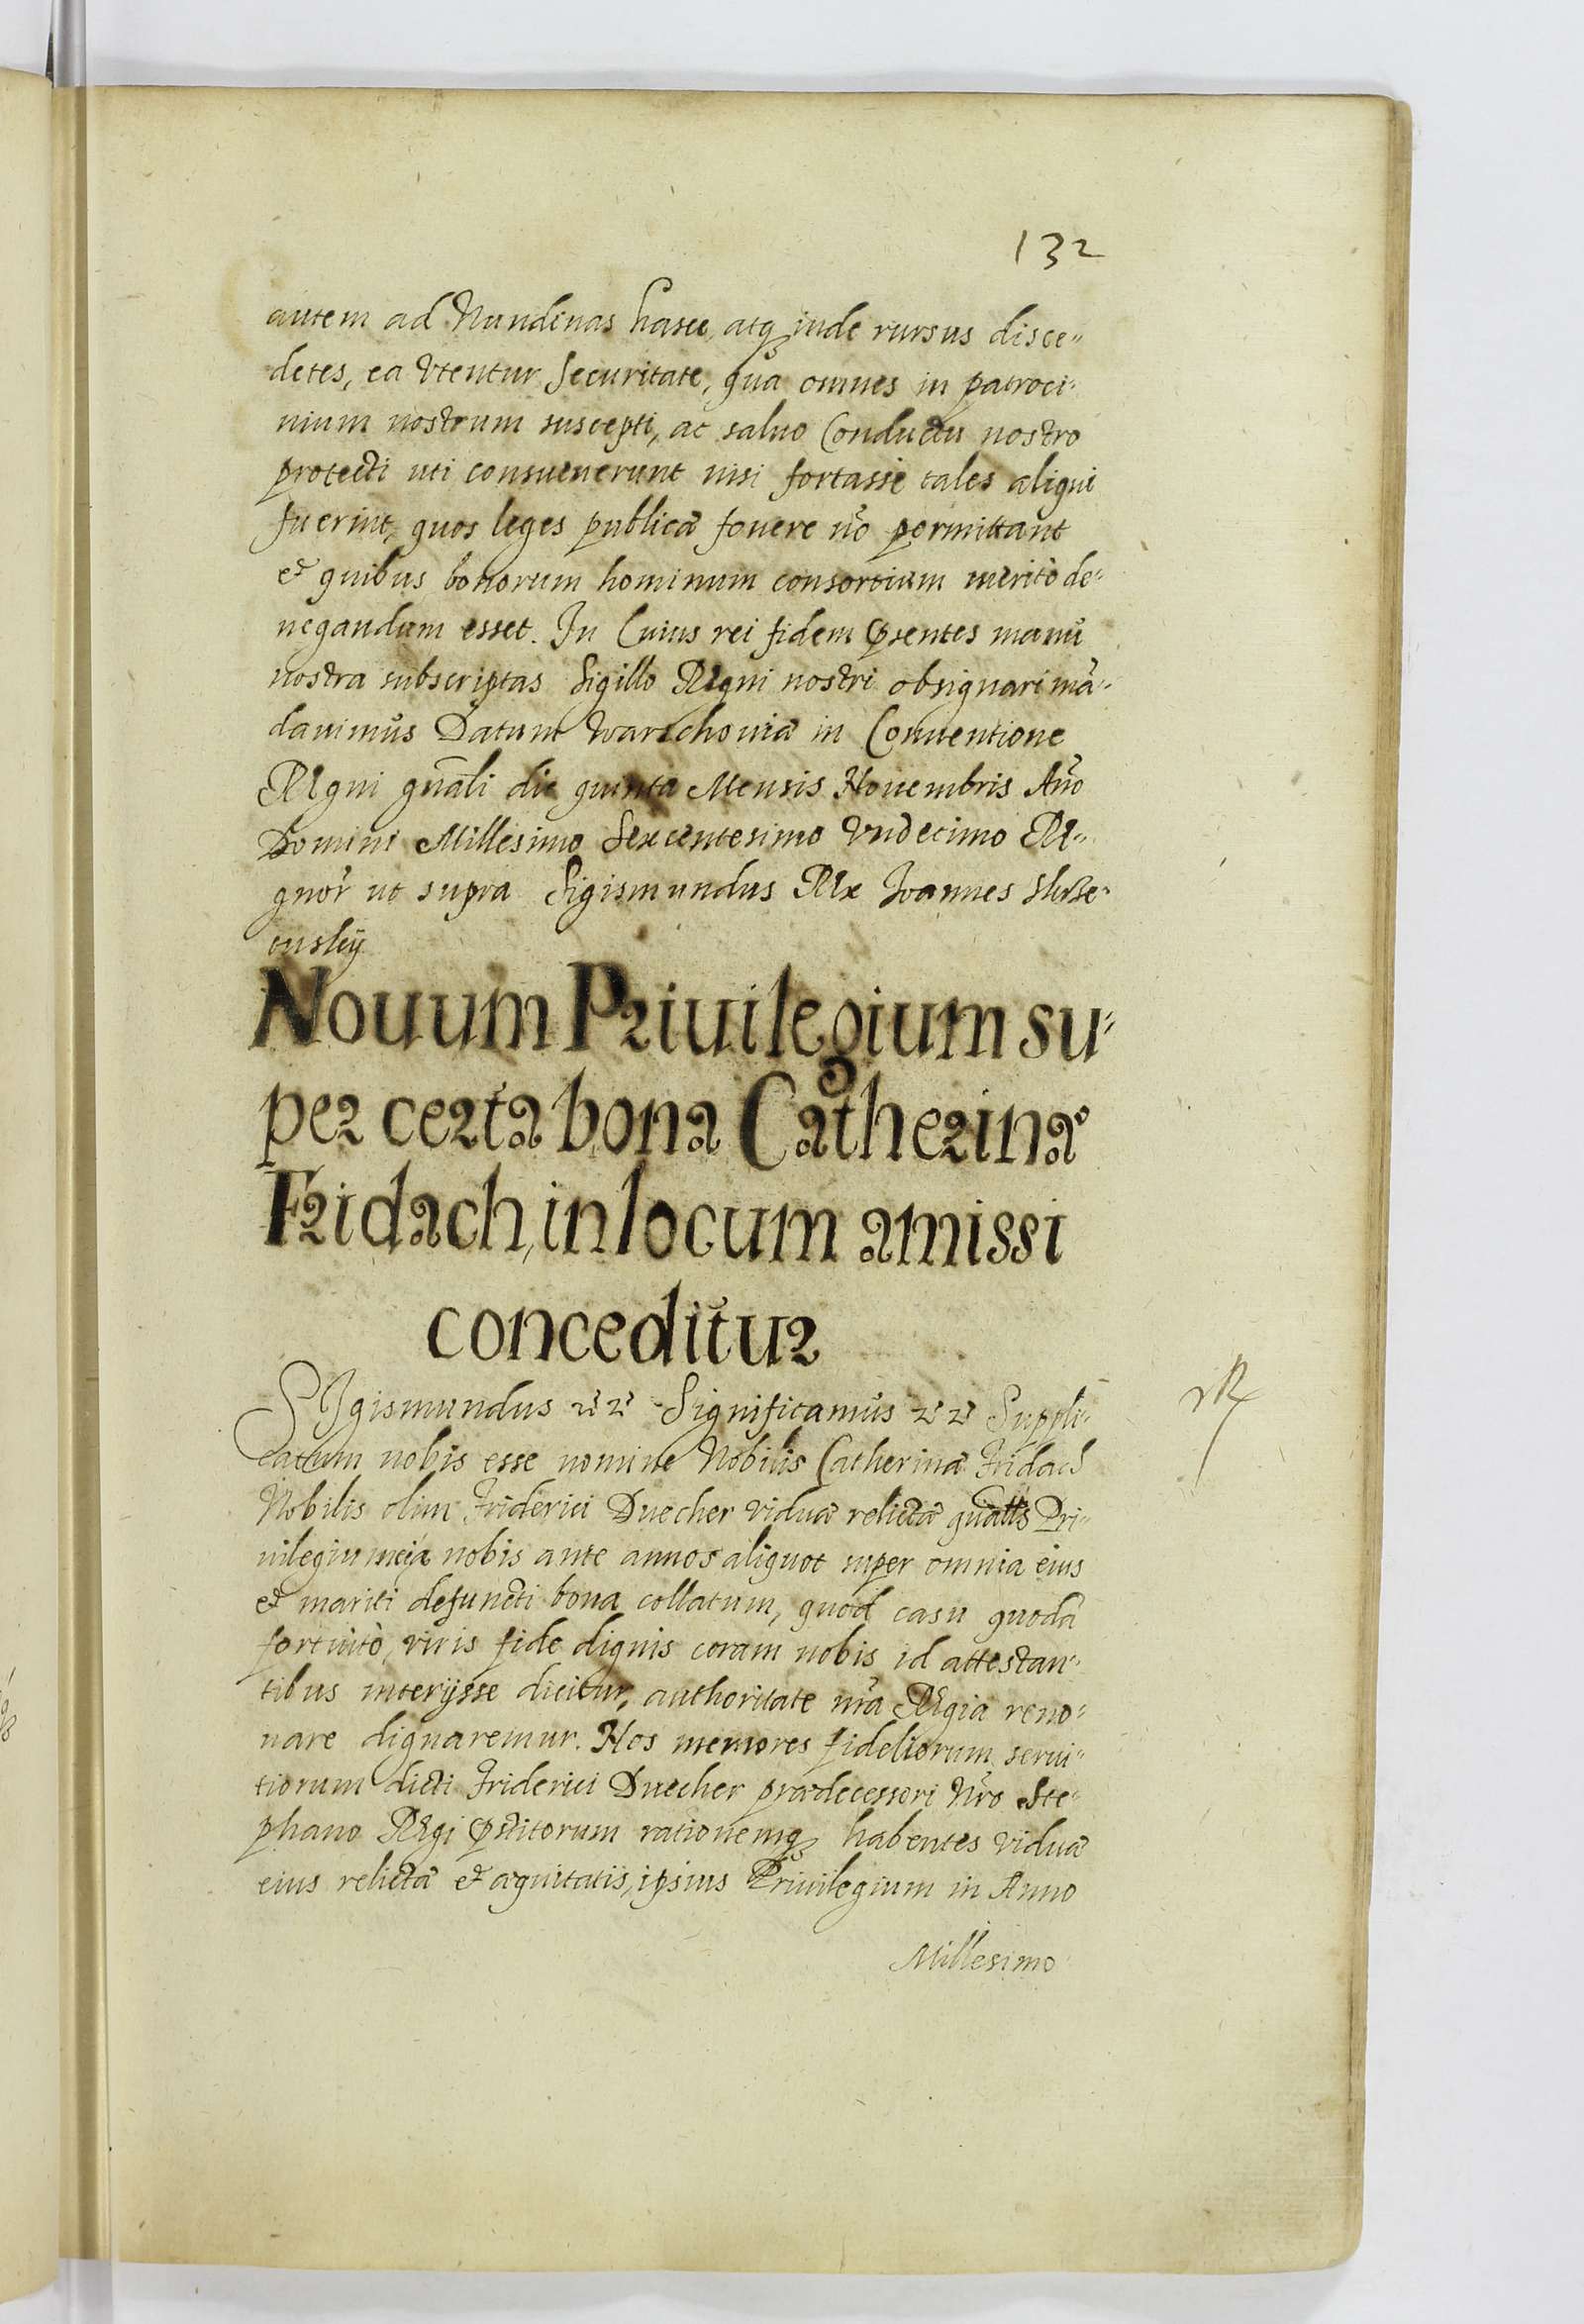 132
autem ad Nundinas hasce, atq₃ inde rursus disce„
dẽtes, ea Vtentur Securitate, qua omnes in patroci„
nium nostrum suscepti, ac saluo Conductu nostro
protecti uti consueuerunt nisi fortassè tales aliqui
fuerint, quos leges publicæ fouere nõ permittant
et quibus bonorum hominum consortium meritò de„
negandum esset. In Cuius rei fidem pꝛsentes manu
nostra subscriptas Sigillo Regni nostri obsignari mã„
dauimus Datum Warschouiæ in Conuentione
Regni gñali die quinta Mensis Nouembris Año
Domini Millesimo Sexcentesimo Vndecimo Re„
gnor̃ ut supra Sigismundus Rex Ioannes
Nouum Priuilegium su„
per certa bona Catherinæ
Fridach, in locum amissi
conceditur
SIgismundus etc etc Significamus etc etc Suppli„
catum nobis esse nomine Nobilis Catherinæ Fridach
Nobilis olim Friderici Duecher viduæ relictæ quatts Pri„
uilegium nobis ante annos aliquot super omnia eius
et mariti defuncti bona collatum, quod casu quodã
fortuitò, viris fide dignis coram nobis id attestan„
tibus interijsse dicitur, authoritate nr̃a Regia reno„
uare dignaremur. Nos memores fideliorum serui„
tiorum dicti Friderici Duecher prædecessori Nr̃o Ste„
phano Regi pꝛstitorum rationemq₃ habentes viduæ
eius relictæ et æquitatis, ipsius Priuilegium in Anno
Millesimo